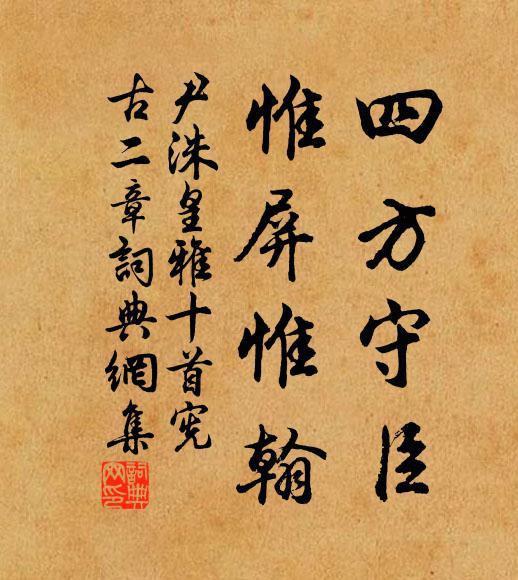 四方守臣
惟屏惟翰
尹洙皇雅十首宪
古二章詞典網集
詞典网印